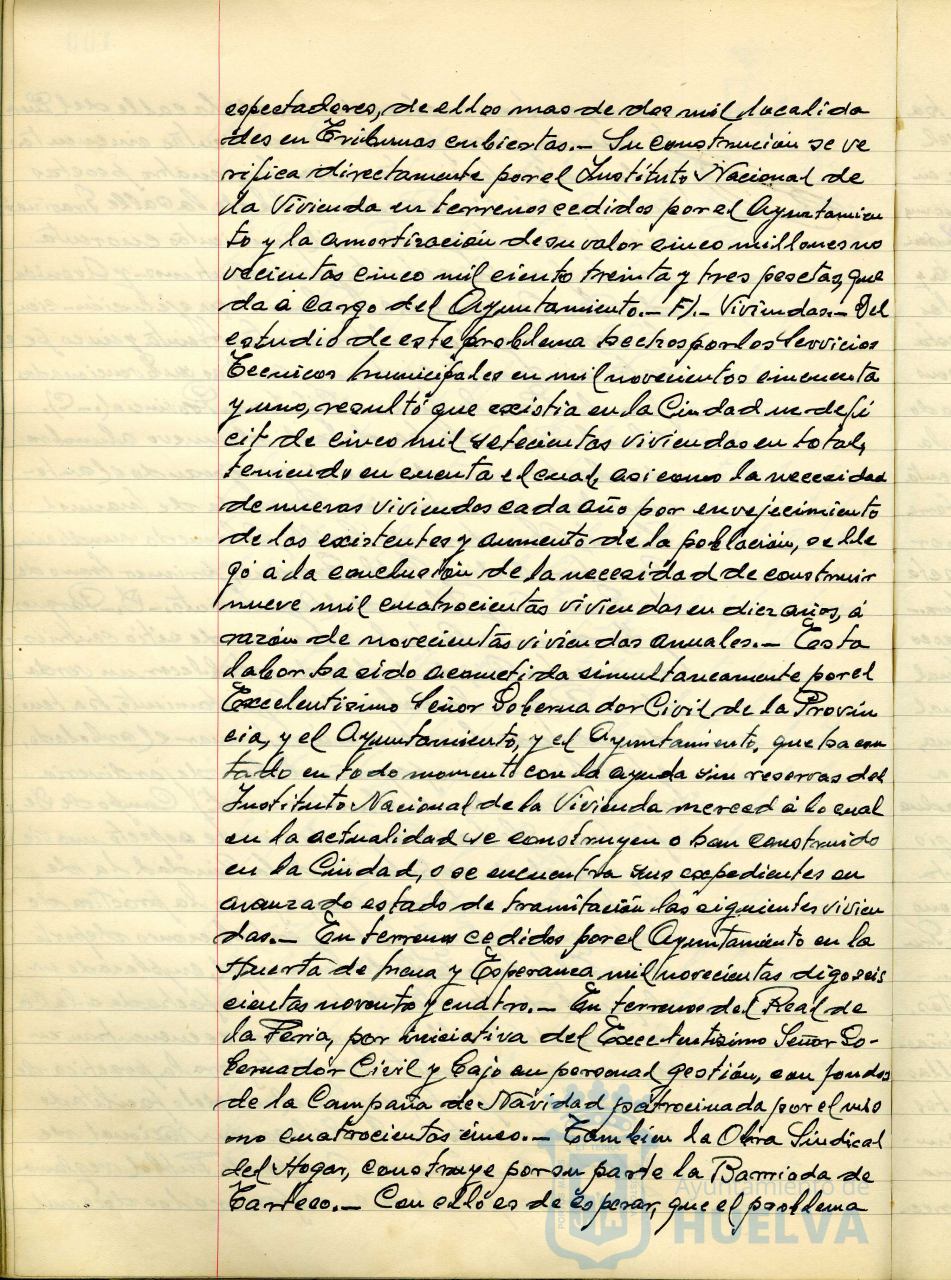 espectadores, de ellos mas de dos mil localida
des en Tribunas cubiertas.— Su construcion se ve
rifica directamente por el Instituto Nacional de
la Vivienda en terrenos cedidos por el Ayuntamien
to y la amortización de su valor cinco millones no
vecientas cinco mil ciento treinta y tres pesetas, que
da á cargo del Ayuntamiento.— F).— Viviendas.— Del
estudio de este problema hechos por los Servicios
Tecnicos Municipales en mil novecientos cincuenta
y uno, resultó que existia en la Ciudad un defi
cit de cinco mil setecientas viviendas en total,
teniendo en cuenta el cual, asi como la necesidad
de nuevas viviendas cada año por envejecimiento
de las existentes y aumento de la población, se lle
gó á la conclusión de la necesidad de construir
nueve mil cuatrocientas viviendas en diez años, á
razón de novecientas viviendas anuales.— Esta
labor ha sido acometida simultaneamente por el
Excelentisimo Señor Gobernador Civil de la Provin
cia, y el Ayuntamiento, y el Ayuntamiento, que ha con
tado en todo momento con la ayuda sin reservas del
Instituto Nacional de la Vivienda merced á lo cual
en la actualidad se construyen o han construido
en la Ciudad, o se encuentra sus expedientes en
avanzado estado de tramitación las siguientes vivien
das.— En terrenos cedidos por el Ayuntamiento en la
Huerta de Mena y Esperanza mil novecientas digo seis
cientas noventa y cuatro.— En terrenos del Real de
la Feria, por iniciativa del Excelentisimo Señor Go-
bernador Civil y bajo su personal gestión, con fondos
de la Campaña de Navidad patrocinada por el mis
mo cuatrocientas cinco.— Tambien la Obra Sindical
del Hogar, construye por su parte la Barriada de
Tarteso.— Con ello es de esperar, que el problema
Ayuntamiento de
HUELVA